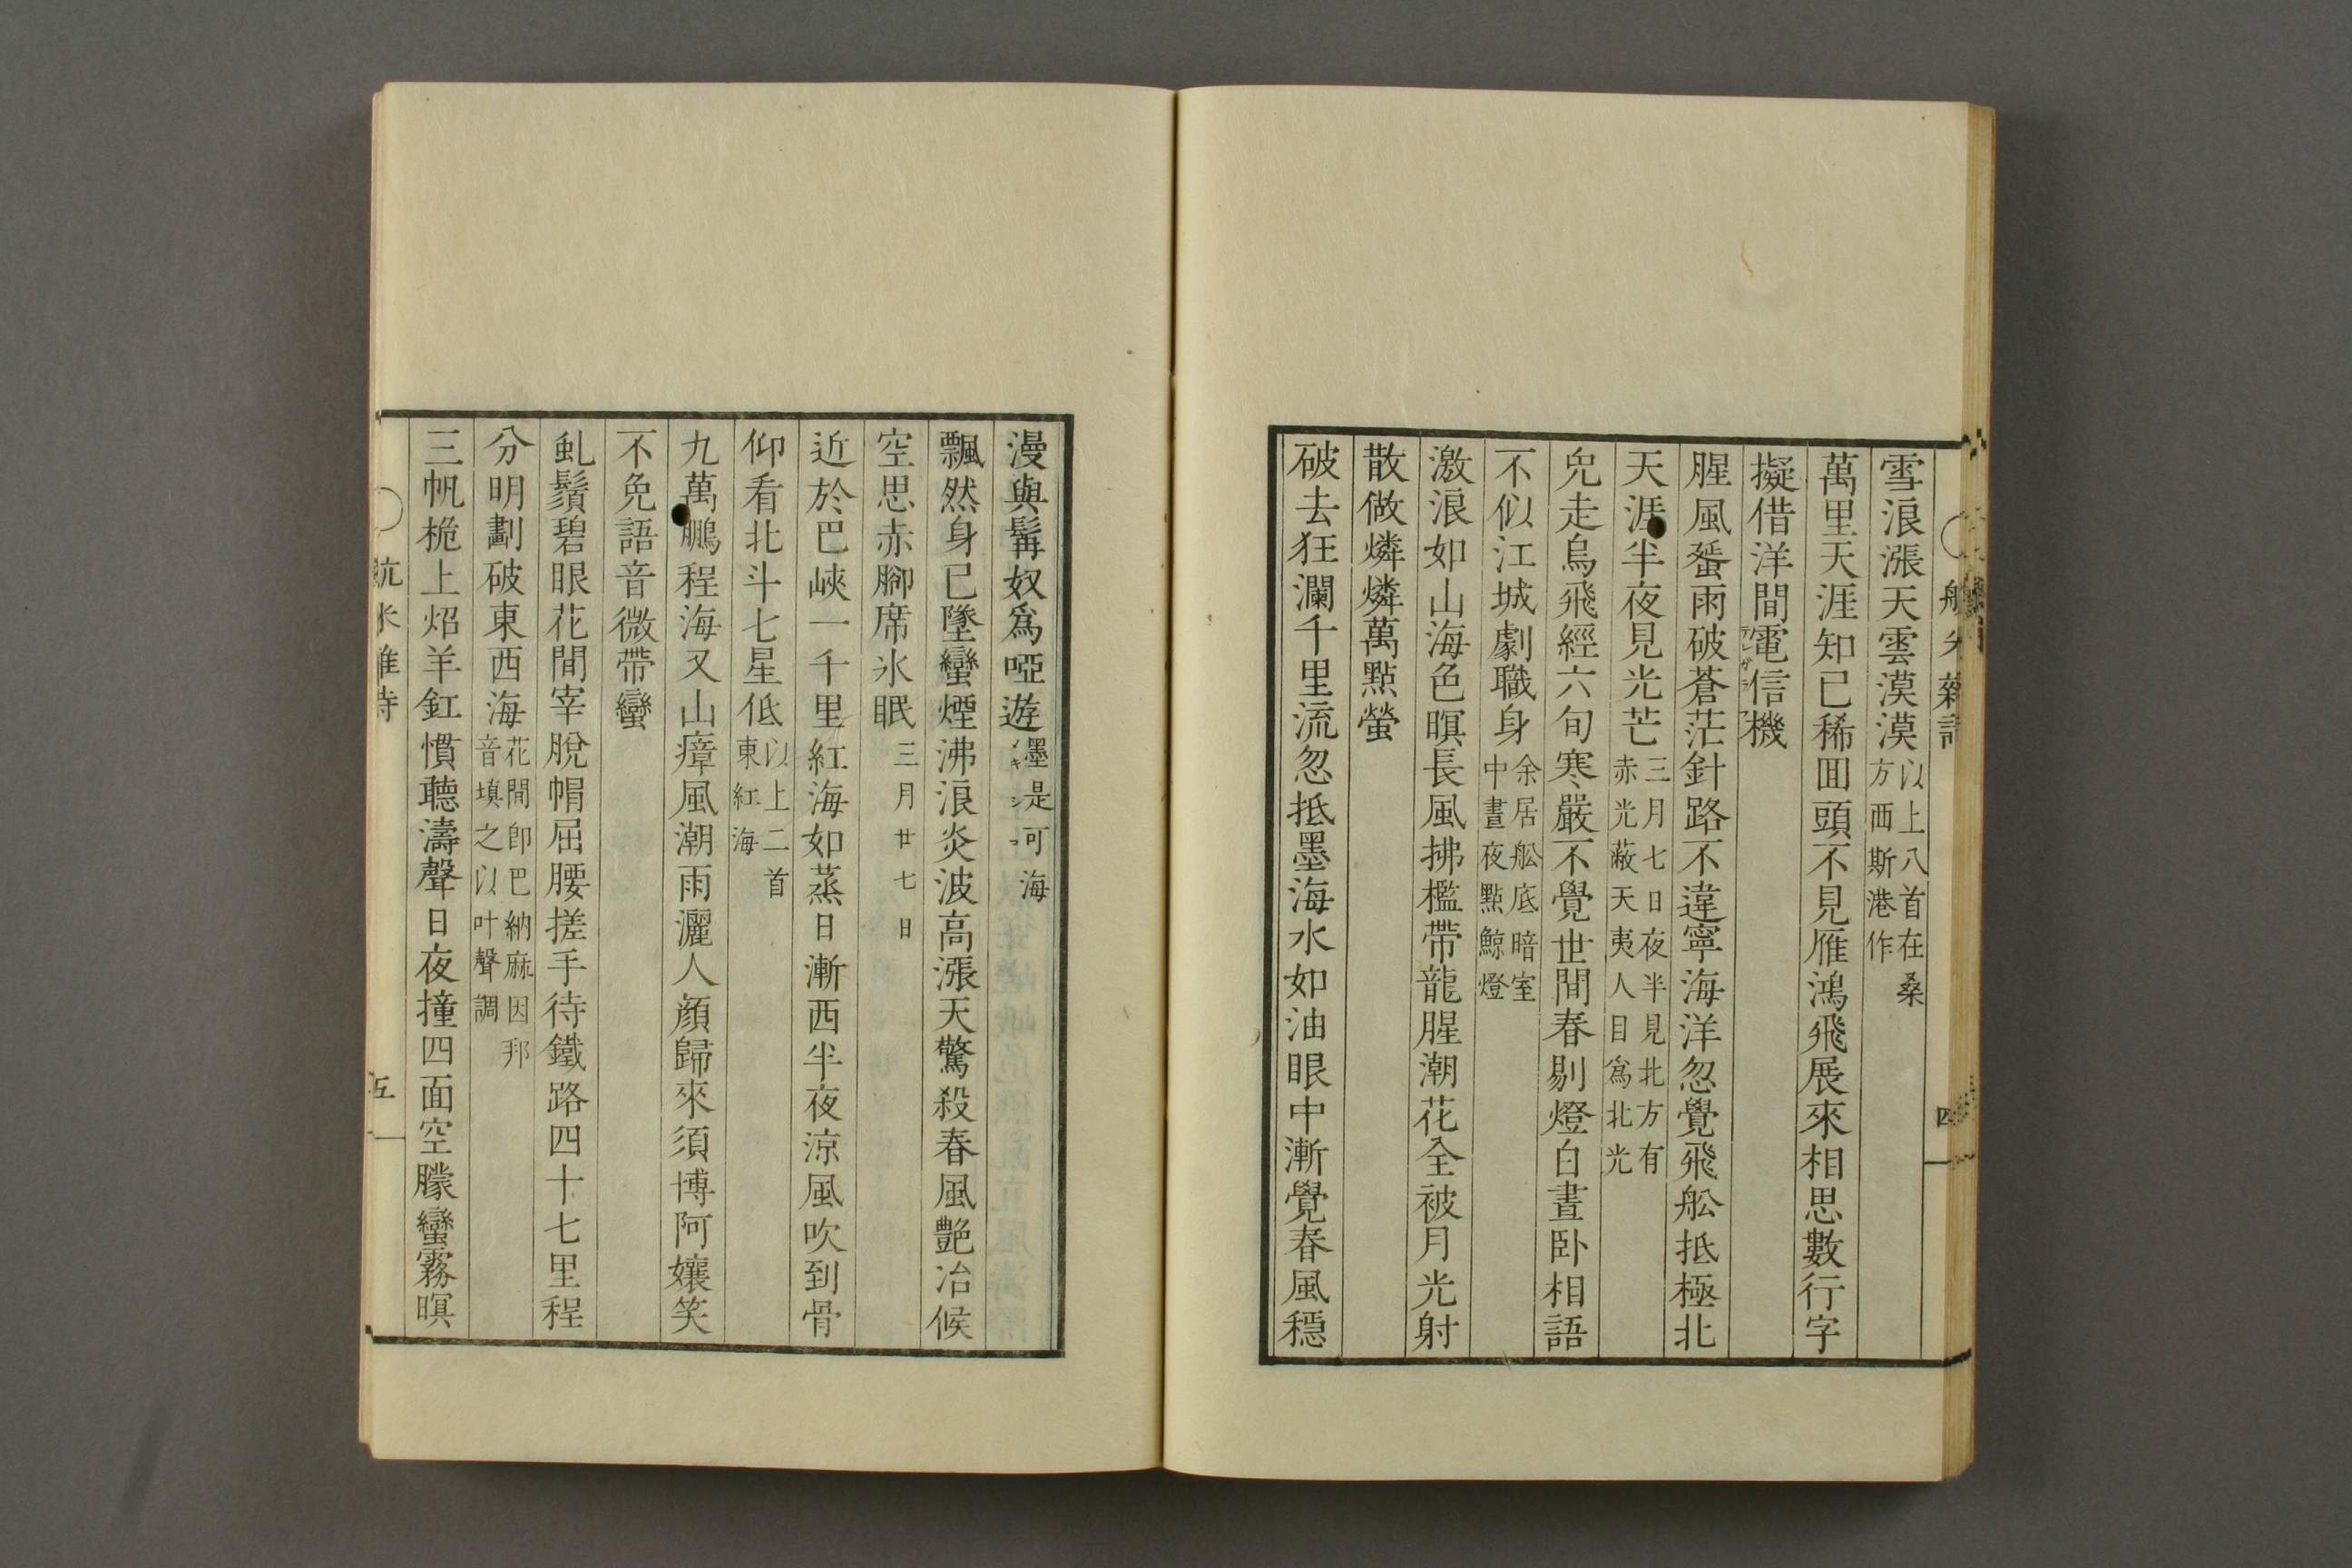 雪浪漲天雲漠漠以上八首在桑方西斯港作
萬里天涯知已稀囬頭不見雁鴻飛展來相思數行字
擬借洋間電信機
腥風蜑雨破蒼茫針路不違寧海洋忽覺飛舩抵極北
天涯半夜見光芒三月七日夜半見北方有赤光蔽天夷人目爲北光
兒走烏飛經六旬寒嚴不覺世間春剔燈白晝卧相語
不似江城劇職身余居舩底暗室中晝夜點鯨燈
激浪如山海色暝長風拂檻帶龍腥潮花全被月光射
散做燐燐萬點螢
破去狂瀾千里流忽抵墨海水如油眼中漸覺春風穩
四
漫與髯奴爲啞遊墨是可海
飄然身已墜蠻煙沸浪炎波高漲天驚殺春風艷冶候
空思赤腳席氷眠三月廿七日
近於巴峽一千里紅海如蒸日漸西半夜涼風吹到骨
仰看北斗七星低以上二首東紅海
九萬鵬程海又山瘴風潮雨灑人顔歸來須博阿孃笑
不免語音微帶蠻
虬鬚碧眼花間宰脫帽屈腰搓手待鐵路四十七里程
分明劃破東西海花間卽巴納麻因邦音塡之以叶聲調
三帆桅上炤羊釭慣聽濤聲日夜撞四面空朦蠻霧暝
五